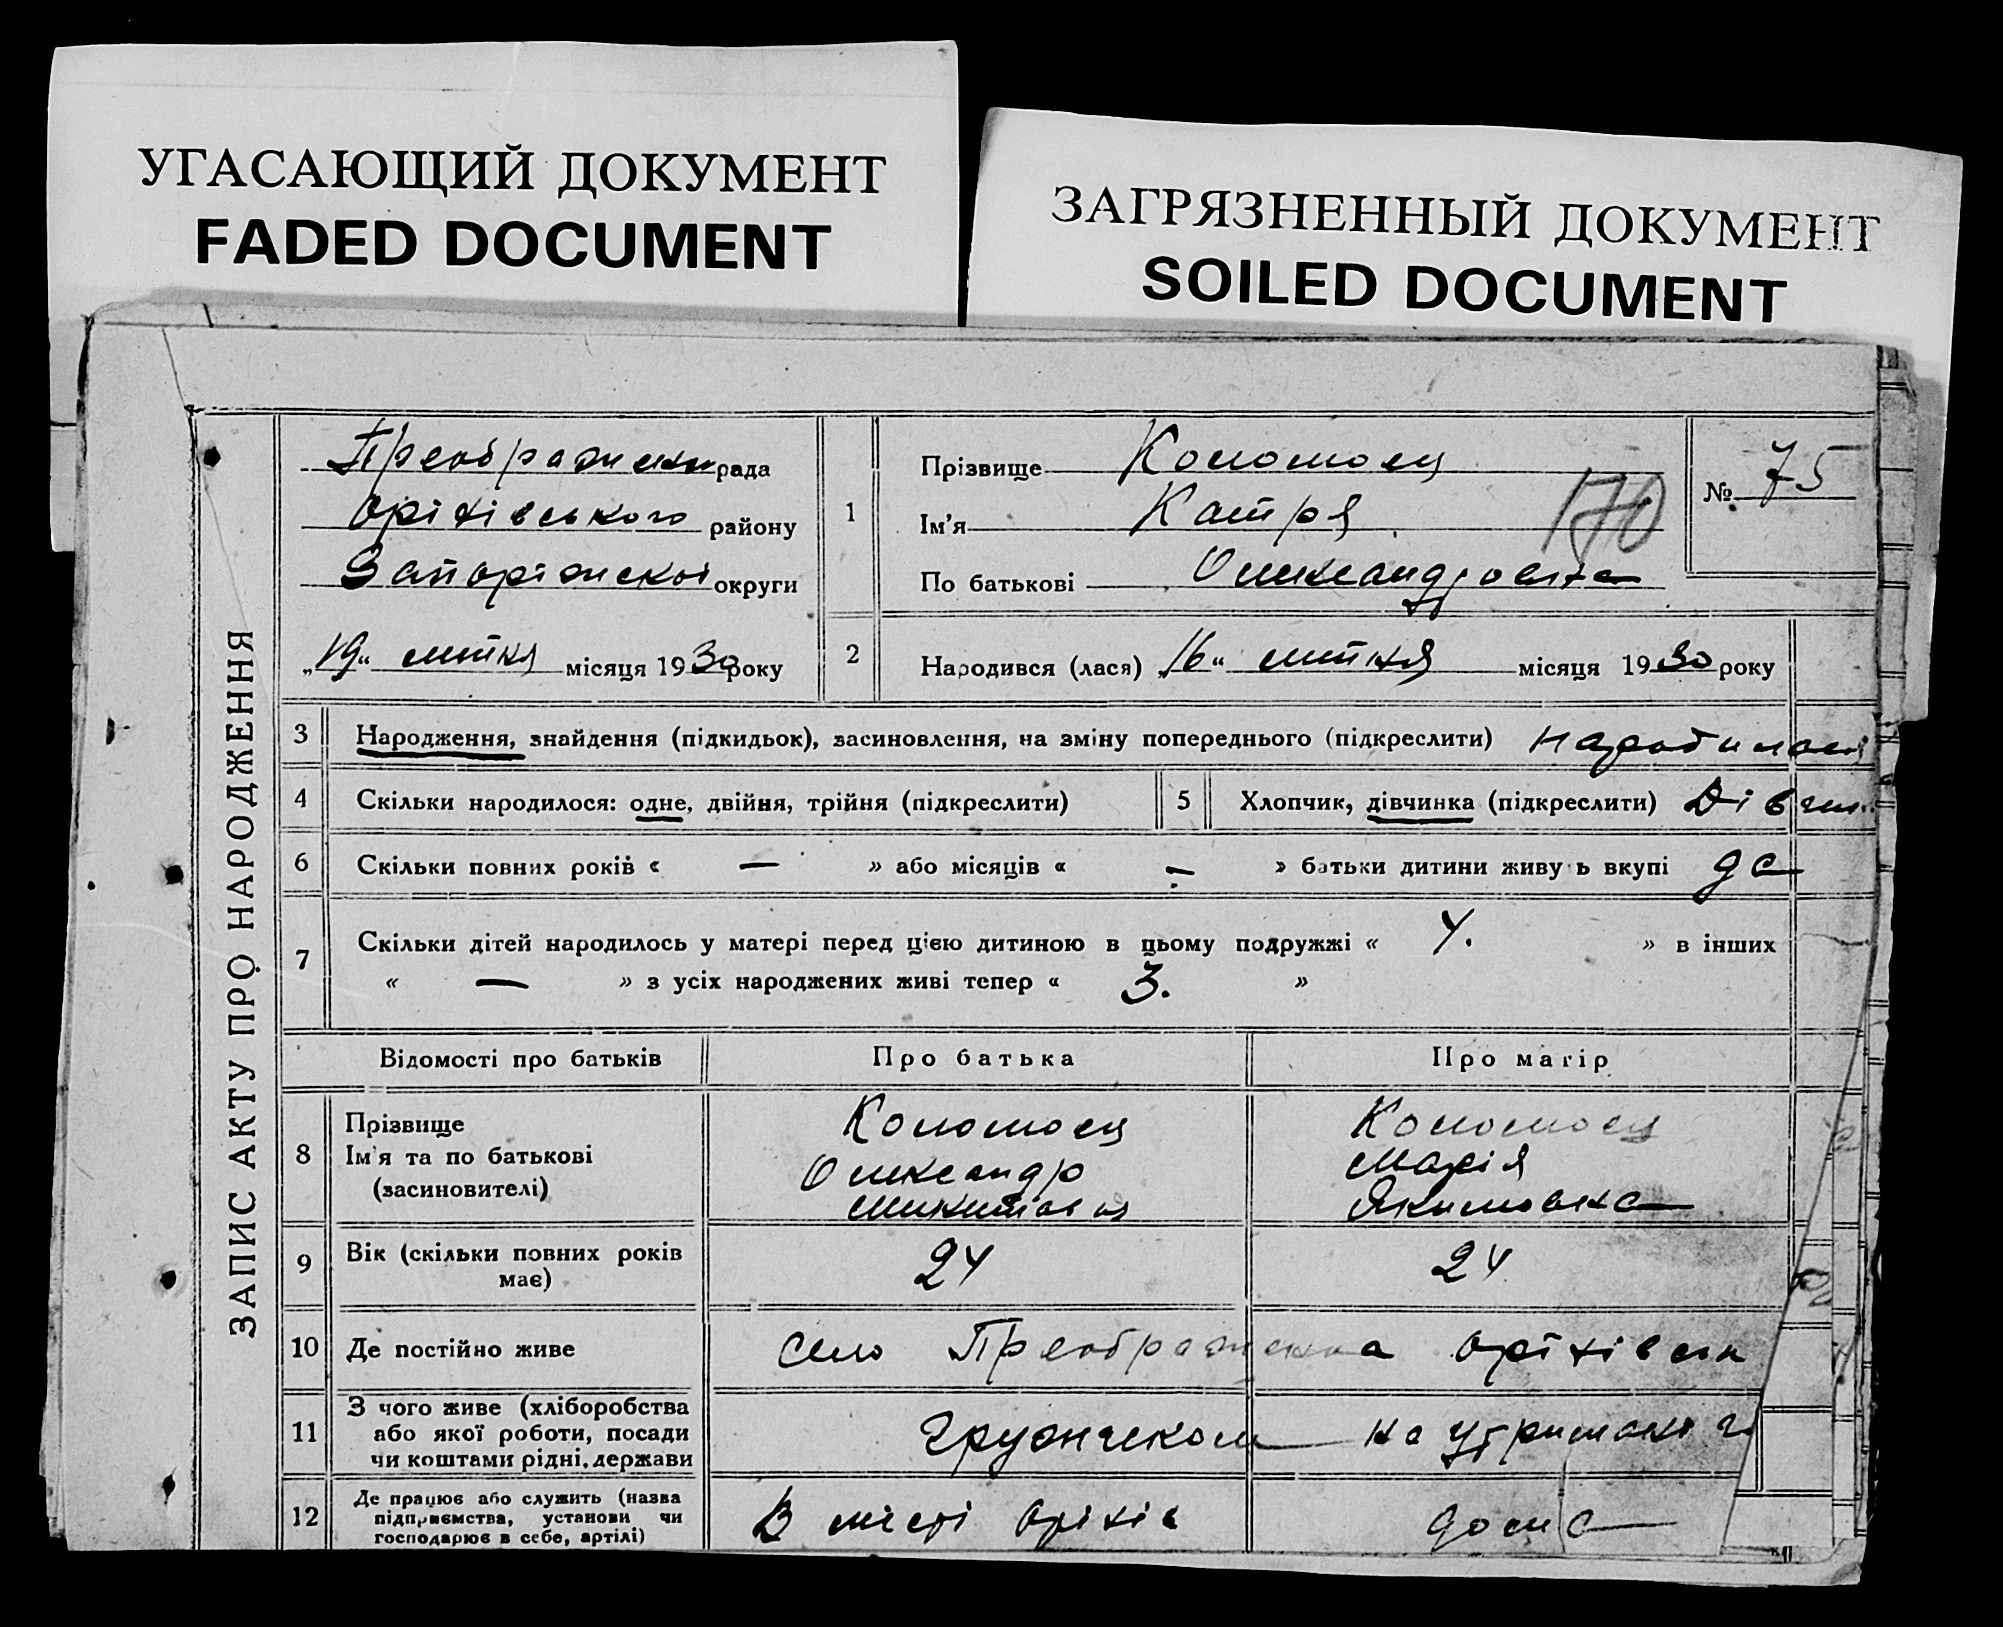 УГАСАЮЩИЙ ДОКУМЕНТ
FADED DOCUMENT
ЗАГРЯЗНЕННЫЙ ДОКУМЕНТ
SOILED DOCUMENT
ЗАПИС АКТУ ПРО НАРОДЖЕННЯ
рада
Оріхівського району
Запоріжської округи
„19“ липня місяця 1930 року
1
Прізвище Коломоец
Ім'я Катря
170
По батькові Олександровна
№ 75
2 Народився (лася) „16“ липня місяця 1930 року
3 Народження, знайдення (підкидьок), засиновлення, на зміну попереднього (підкреслити) народилась
4 Скільки народилося: одне, двійня, трійня (підкреслити)
5 Хлопчик, дівчинка (підкреслити) Дівчи..
6 Скільки повних років « — » або місяців « — » батьки дитини живу ь вкупі да
7 Скільки дітей народилось у матері перед цією дитиною в цьому подружжі « 4. » в інших
« — » з усіх народжених живі тепер « 3. »
Відомості про батьків Про батька Про матір
8 Прізвище
Ім'я та по батькові
(засиновителі)
Коломоец
Олександр
Микитович
Коломоец
Марія
Якимовна
9 Вік (скільки повних років
має)
24 24
10 Де постійно живе село Преображенка Оріхівськ
11 З чого живе (хліборобства
або якої роботи, посади
чи коштами рідні, держави
на утримані
12 Де працює або служить (назва
підприємства, установи чи
господарює в себе, артілі)
В місті Оріхів дома